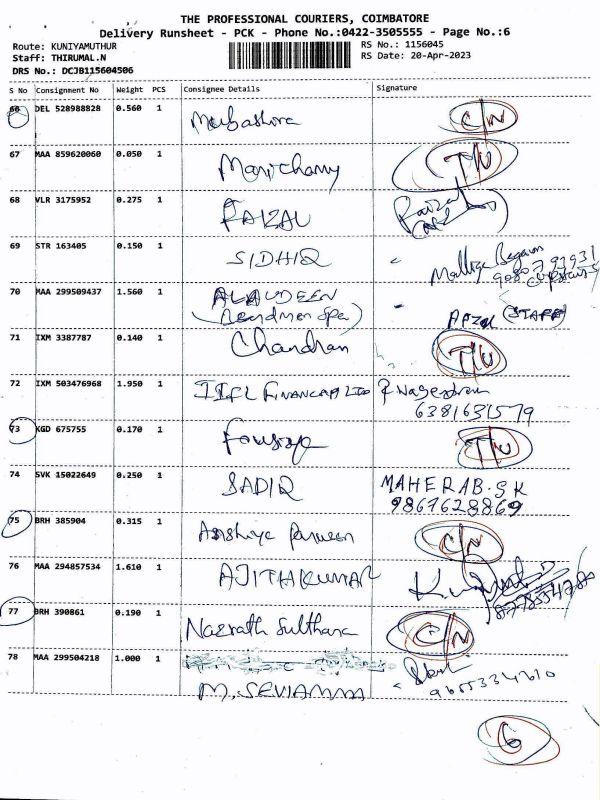 THE PROFESSIONAL COURIERS, COIMBATORE
Delivery Runsheet - PCK - Phone No.:0422-3505555 - Page No.:6
Route: KUNIYAMUTHUR
RS No.: 1156045
Staff: THIRUMAL.N
RS Date: 20-Apr-2023
DRS No.: DCJB115604506
S No Consignment No Weight PCS Consignee Details Signature
66 DEL 528988828 0.560 1 Mubashira C/N
67 MAA 859620060 0.050 1 Manichamy T/U
68 VLR 3175952 0.275 1 FAIZAL Faizal
69 STR 163405 0.150 1 SIDHIQ Begum
70 MAA 299509437 1.560 1 ALAUDEEN AFZAL (STAFF)
71 IXM 3387787 0.140 1 Chandran T/U
72 IXM 503476968 1.950 1 IIFL FINANCAP LTD P Nagendran
6381631579
73 KGD 675755 0.170 1 T/U
74 SVK 15022649 0.250 1 SADIQ MAHERAB.SK
9867628869
75 BRH 385904 0.315 1 Parveen C/N
76 MAA 294857534 1.610 1 AJITHKUMAR
77 BRH 390861 0.190 1 Nazrath Sulthana C/N
78 MAA 299504218 1.000 1
M. SEVIAMMA
6